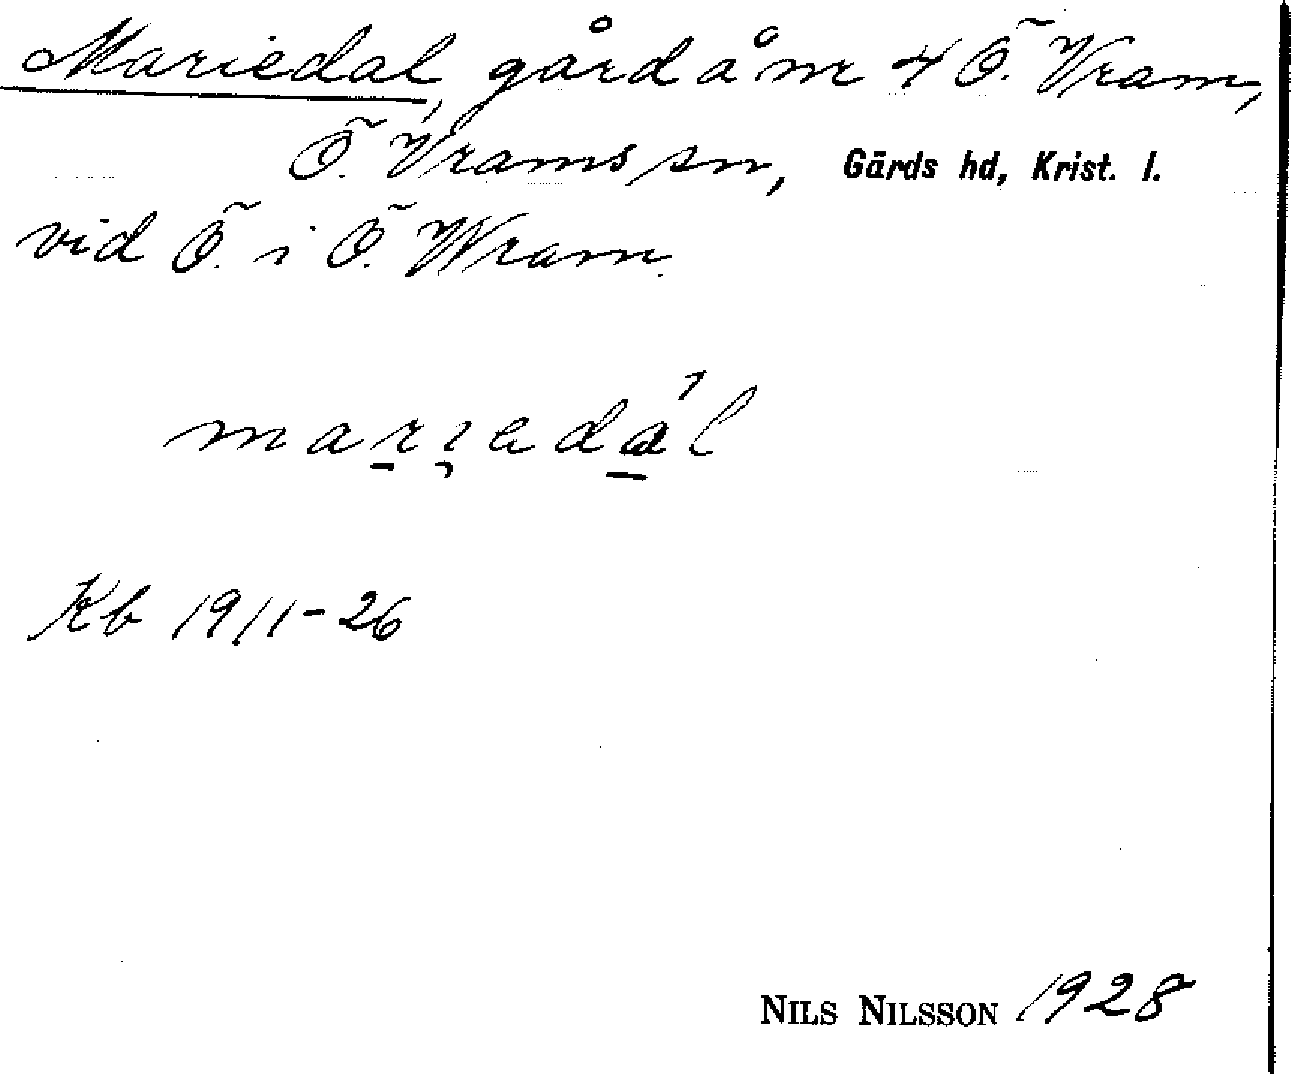 Mariedal, gård å nr 4 Ö. Vram,
Ö. Vrams sn, Gärds hd, Krist. l.
vid Ö. i Ö. Wram.
mariedál
Kb 1911-26
NILS NILSSON 1928